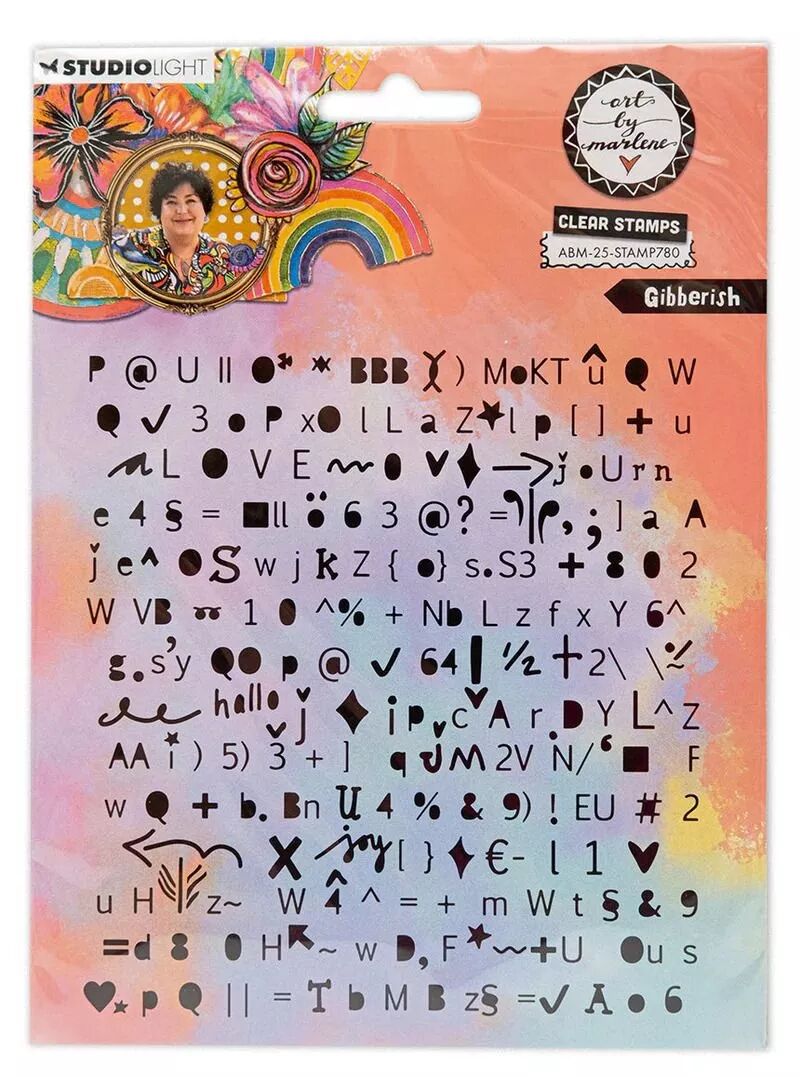 STUDIOLIGHT
art
by
marlene
CLEAR STAMPS
ABM-25-STAMP780
Gibberish
P @ U ll O* * BBB )( ) MoKT û Q W
Q ✓ 3 • P xO l L a Z★l p [ ] + u
L O V E ~ 0 ♥ ♦ → j • U r n
e 4 § = ■ll ö 6 3 @ ? = , ; ] a A
j e ^ O S w j k Z { •} s.S3 + 8 0 2
W VB 1 0 ^% + Nb L z f x Y 6^
g.s'y QO p @ ✓ 64 | ½ + 2\ \
hallo j ♦ i p c ♥ A r . D Y L ^ Z
AA i ★ ) 5) 3 + ] q J M 2V N/ ‘ ■ F
w Q + b. Bn U 4 % & 9) ! EU # 2
← X joy [ } ♦ €- l 1 ♥
u H z~ W 4 ^ ^ = + m W t § & 9
=d 8 0 H ~ w D, F★~+U Ou s
♥★ p Q || = T b M B z§ =✓ A • 6